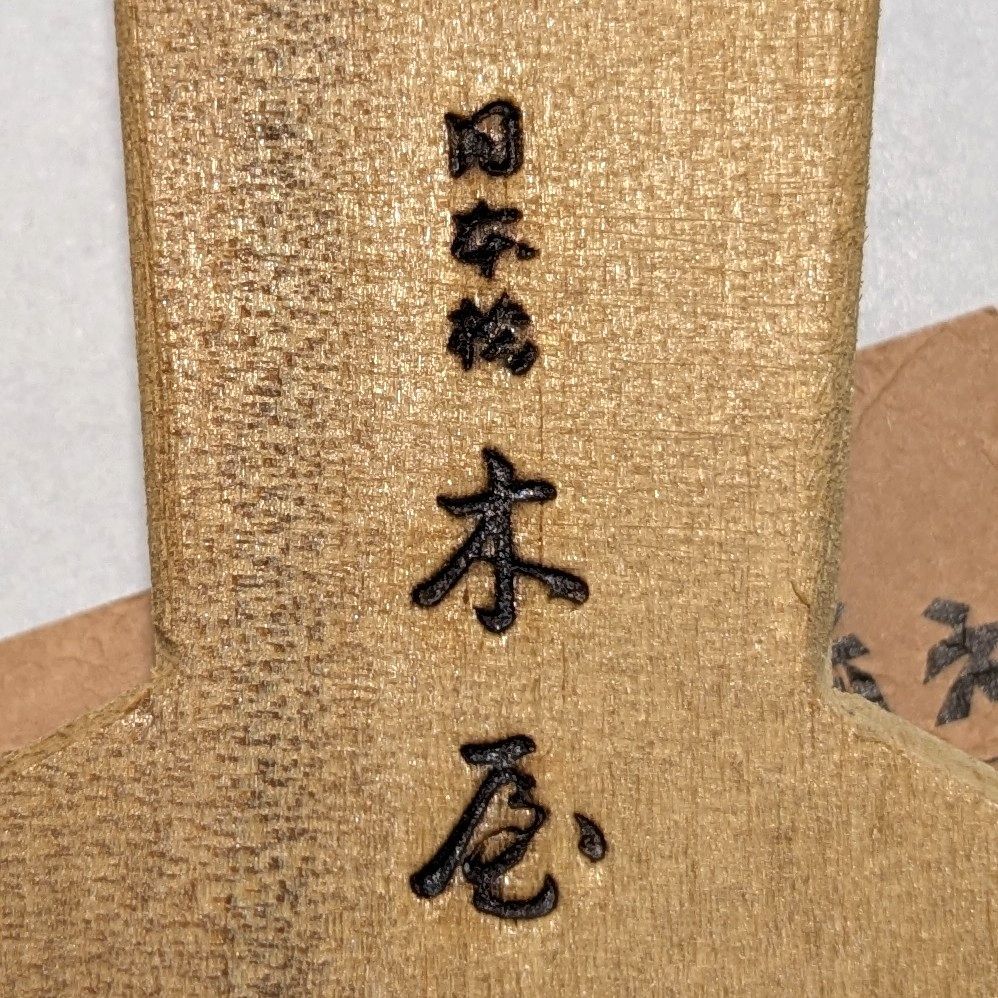 日本橋木屋